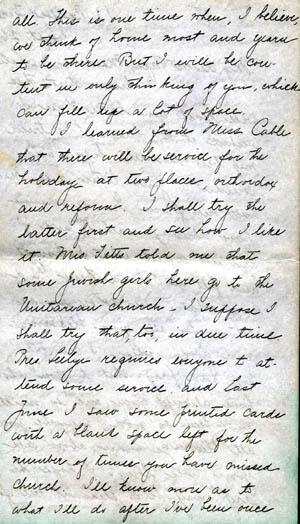 all. This is one time when, I believe,
we think of home most and yearn
to be there. But I will be con-
tent in only thinking of you, which
can fill up a lot of space.
I learned from Miss Cable
that there will be service for the
holiday at two places, orthodox
and reform. I shall try the
latter first and see how I like
it. Mrs. Tetts told me that
some Jewish girls here go to the
Unitarian church - I suppose I
shall try that, too, in due time
Pres Seelye requires everyone to at-
tend some service and last
June I saw some printed cards
with a blank space left for the
number of times you have missed
church. I'll know more as to
what I'll do after I've been once